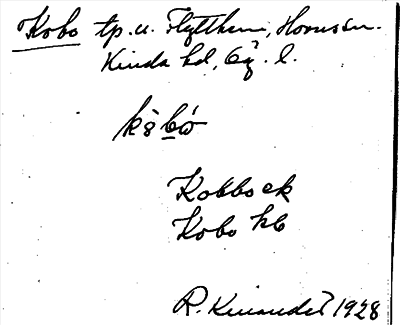 Kobo tp. u. Flytthem, Hornsån.
Kinda hd, Ög. l.
kò bó
Kobbo ek
Kobo hb
R. Kinander 1928